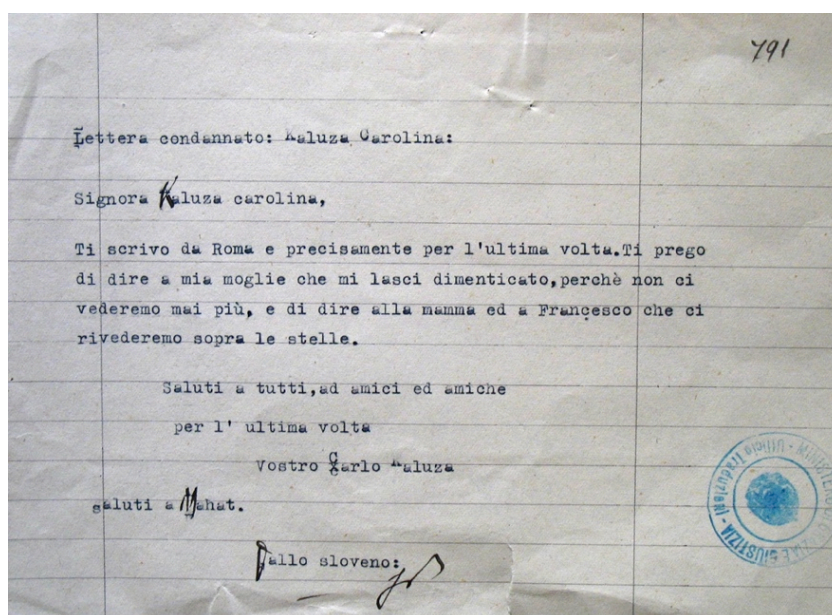 791
Lettera condannato: Kaluza Carolina:
Signora Kaluza carolina,
Ti scrivo da Roma e precisamente per l'ultima volta.Ti prego
di dire a mia moglie che mi lasci dimenticato,perchè non ci
vederemo mai più, e di dire alla mamma ed a Francesco che ci
rivederemo sopra le stelle.
Saluti a tutti,ad amici ed amiche
per l' ultima volta
Vostro Carlo Kaluza
saluti a Mahat.
Dallo sloveno:
E GIUSTIZIA - Ufficio Traduzioni -